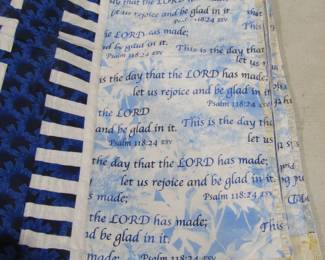 let us rejoice and be glad in it.
Psalm 118:24 ESV
This is the day
LORD has made;
and be glad in it.
Psalm 118:24 ESV
This
is the day that the LORD has made;
let us rejoice and be glad in it.
Psalm 118:24 ESV
the LORD
This is the day that the
and be glad in it.
Psalm 118:24 ESV
let us
is the day that the LORD has made;
let us rejoice and be glad in it.
Psalm 118:24 ESV
the LORD has made;
This
and be glad in it.
made;
Psalm 118:24 ESV